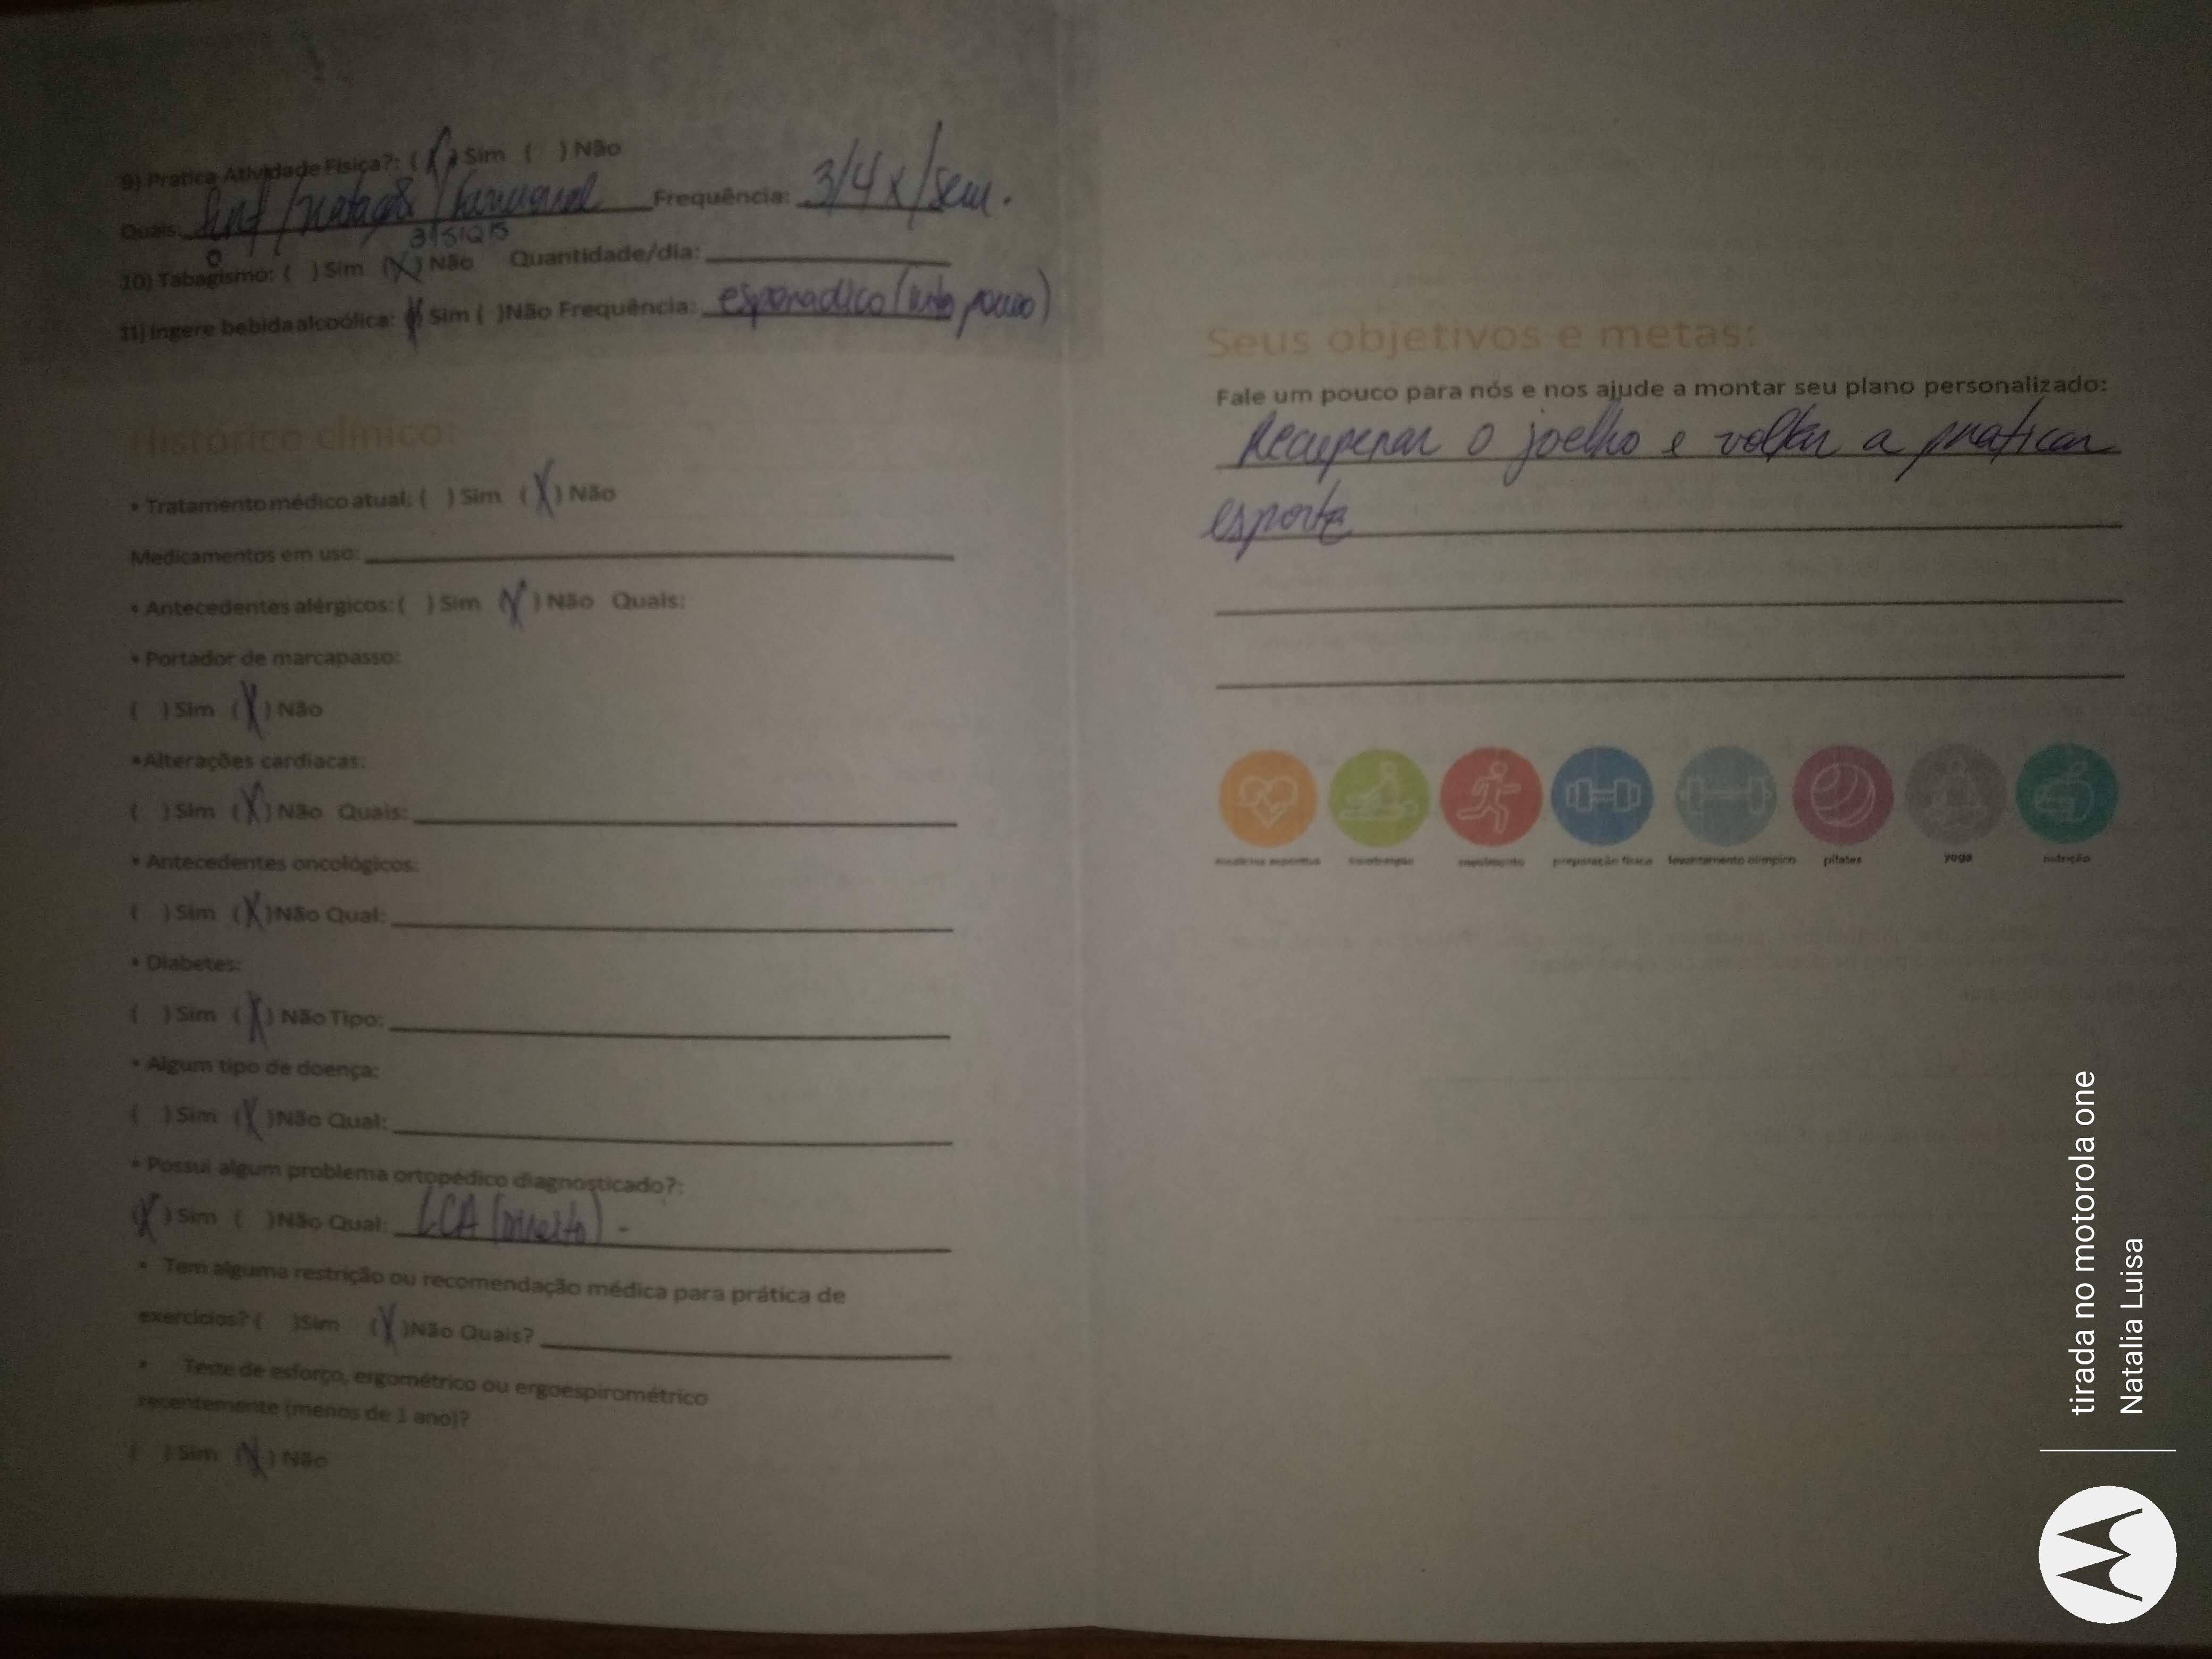 9) Pratica Atividade Física?: (X) Sim ( ) Não
Quais: Frequência: 3/4x/sem.
10) Tabagismo: ( ) Sim (X) Não Quantidade/dia:
11) Ingere bebida alcoólica: (X) Sim ( )Não Frequência: esporadico (muito pouco)
Histórico clínico:
• Tratamento médico atual: ( ) Sim (X) Não
Medicamentos em uso:
• Antecedentes alérgicos: ( ) Sim (X) Não Quais:
• Portador de marcapasso:
( ) Sim (X) Não
• Alterações cardíacas:
( ) Sim (X) Não Quais:
• Antecedentes oncológicos:
( ) Sim (X) Não Qual:
• Diabetes:
( ) Sim (X) Não Tipo:
• Algum tipo de doença:
( ) Sim (X) Não Qual:
• Possui algum problema ortopédico diagnosticado?:
(X) Sim ( ) Não Qual: LCA (Direito) -
• Tem alguma restrição ou recomendação médica para prática de
exercícios? ( )Sim (X)Não Quais?
• Teste de esforço, ergométrico ou ergoespirométrico
recentemente (menos de 1 ano)?
( ) Sim (X) Não
Seus objetivos e metas:
Fale um pouco para nós e nos ajude a montar seu plano personalizado:
Recuperar o joelho e voltar a praticar
esporte
medicina esportiva fisioterapia preparação física levantamento olímpico pilates yoga nutrição
tirada no motorola one
Natalia Luisa